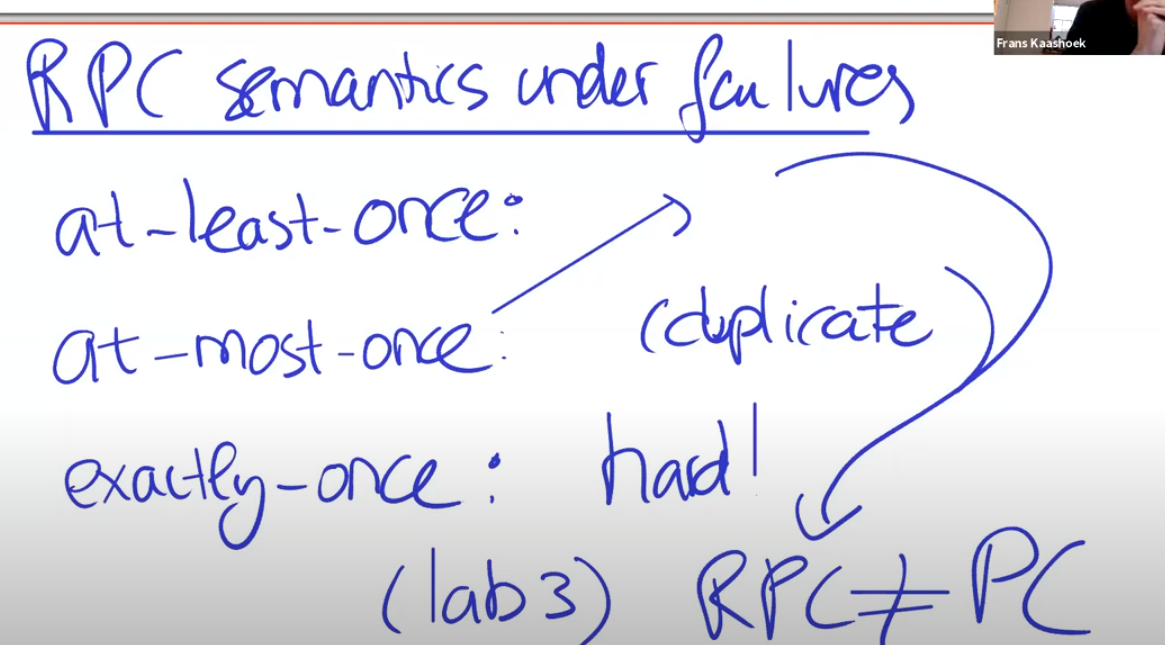 Frans Kaashoek
RPC semantics under failures
at-least-once:
at-most-once:
(duplicate
exactly-once: hard!
(lab 3) RPC ≠ PC